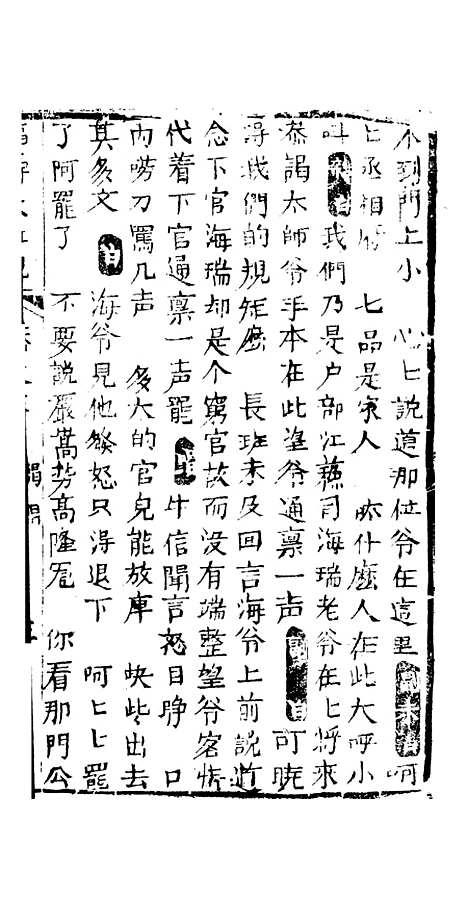 不到門上小 心匕説道那位爺在這里 呵
七品是家人 什麽人在此大呼小
叫 我們乃是户部江蘇司海瑞老爺在匕將來
恭謁太師爺手本在此望爺通禀一声 可曉
得我們的規矩麽 長班未及回言海爺上前説道
念下官海瑞却是个窮官故而没有端整望爺容情
代着下官通禀一声罷 牛信聞言怒目睁 口
内唠刀罵几声 多大的官兒能放庫 快些出去
莫多文 海爺見他發怒只得退下 呵匕匕罷
了阿罷了 不要説嚴嵩势高隆 你看那門公